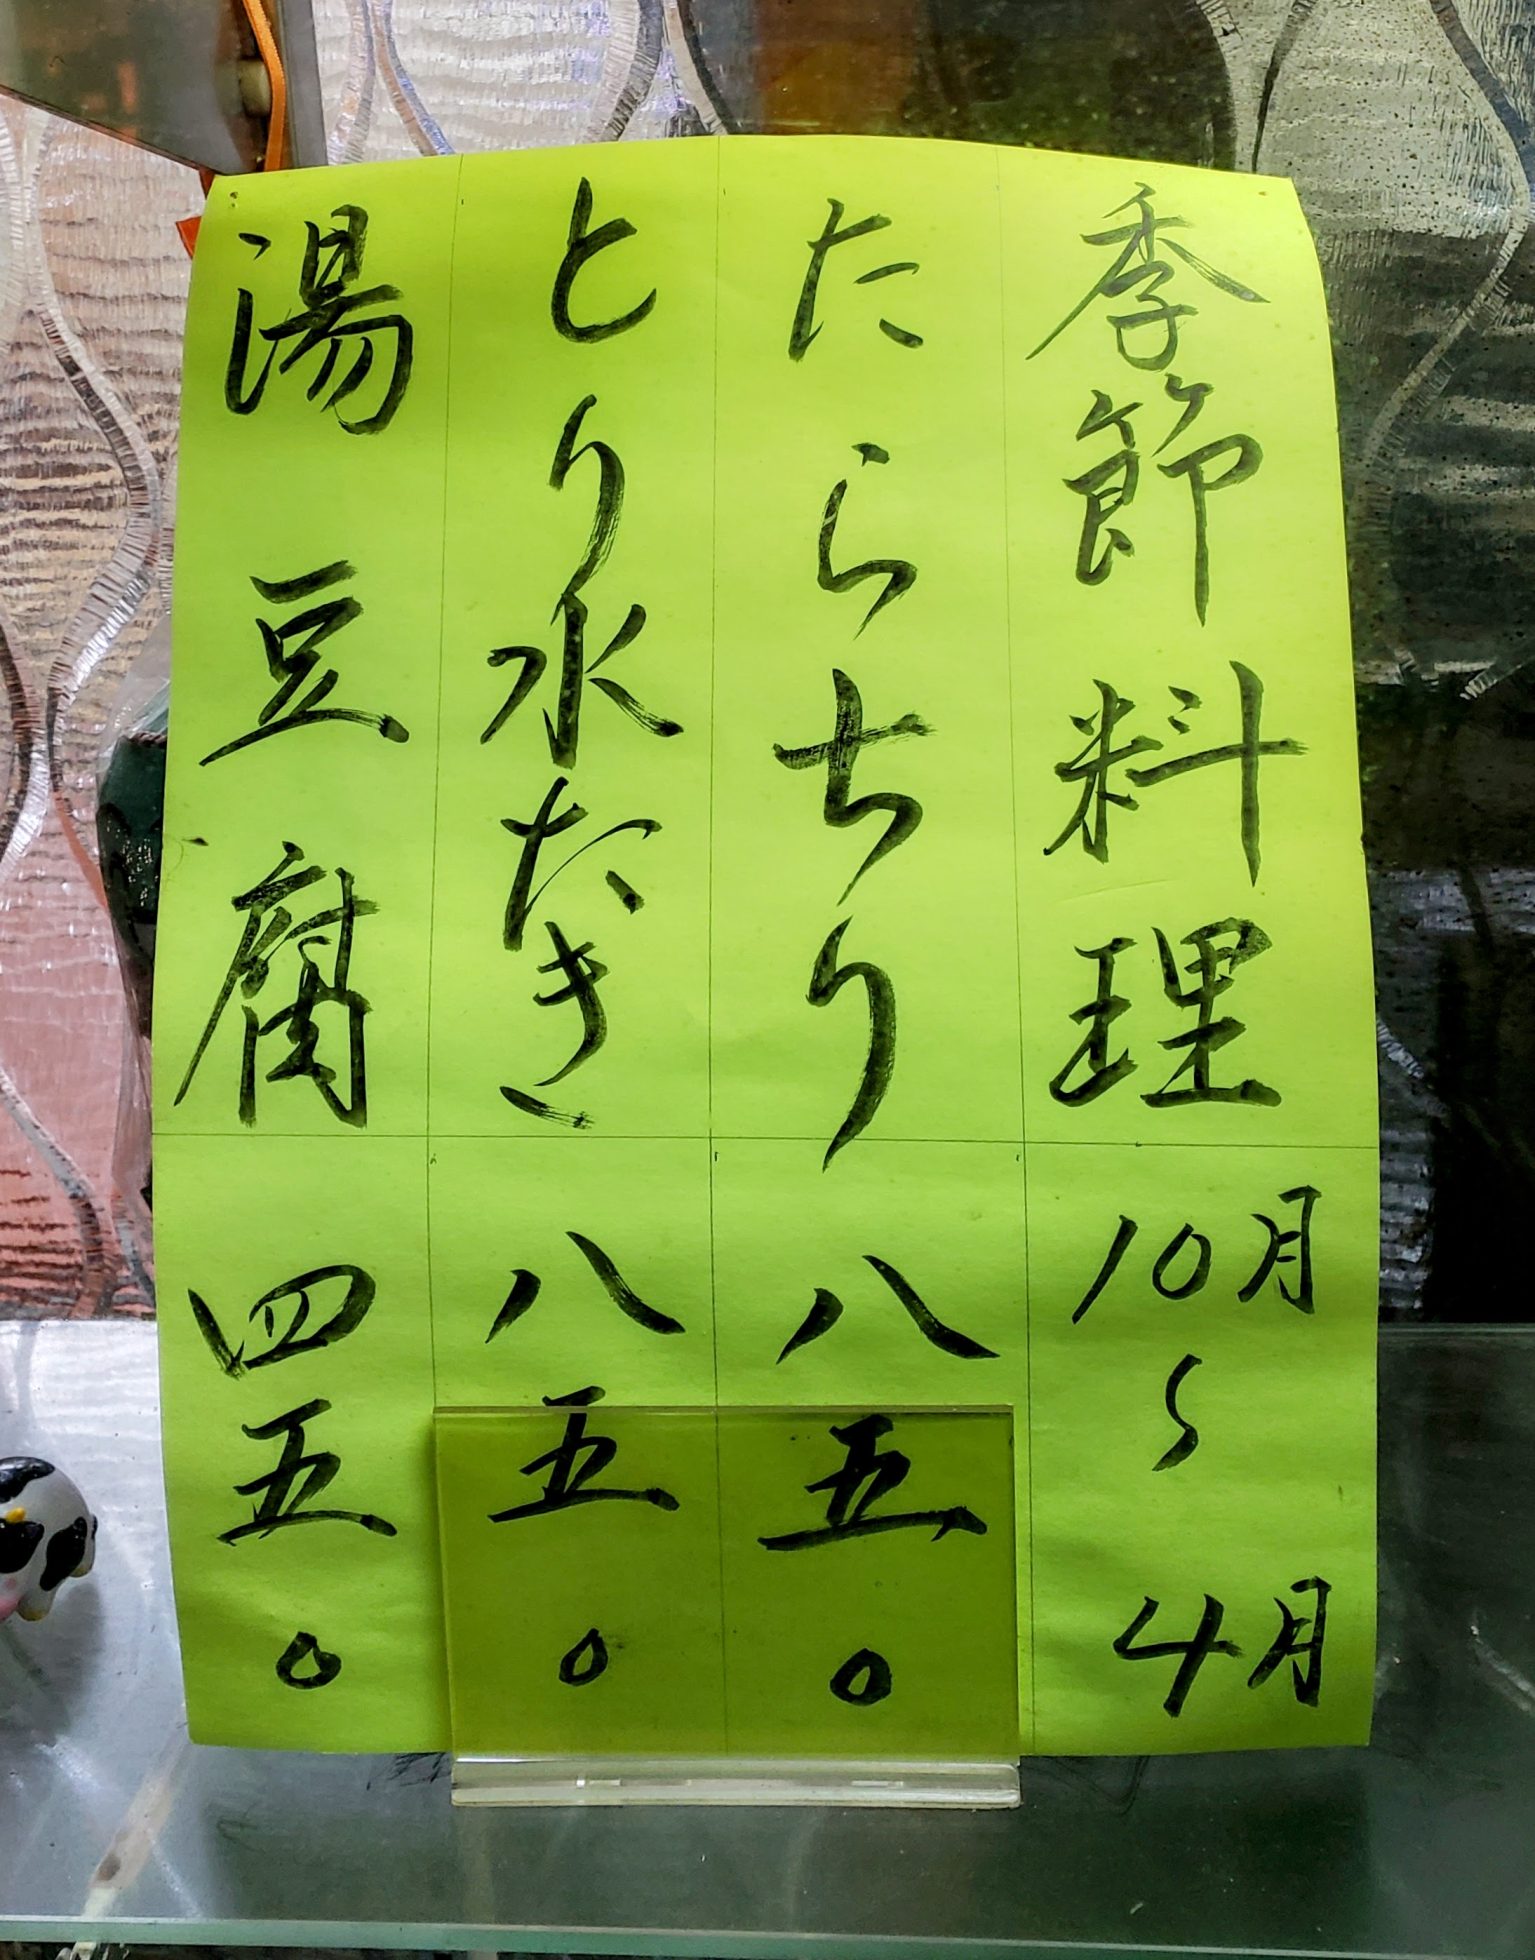 季節料理 10月〜4月
たらちり 八五〇
とり水だき 八五〇
湯豆腐 四五〇